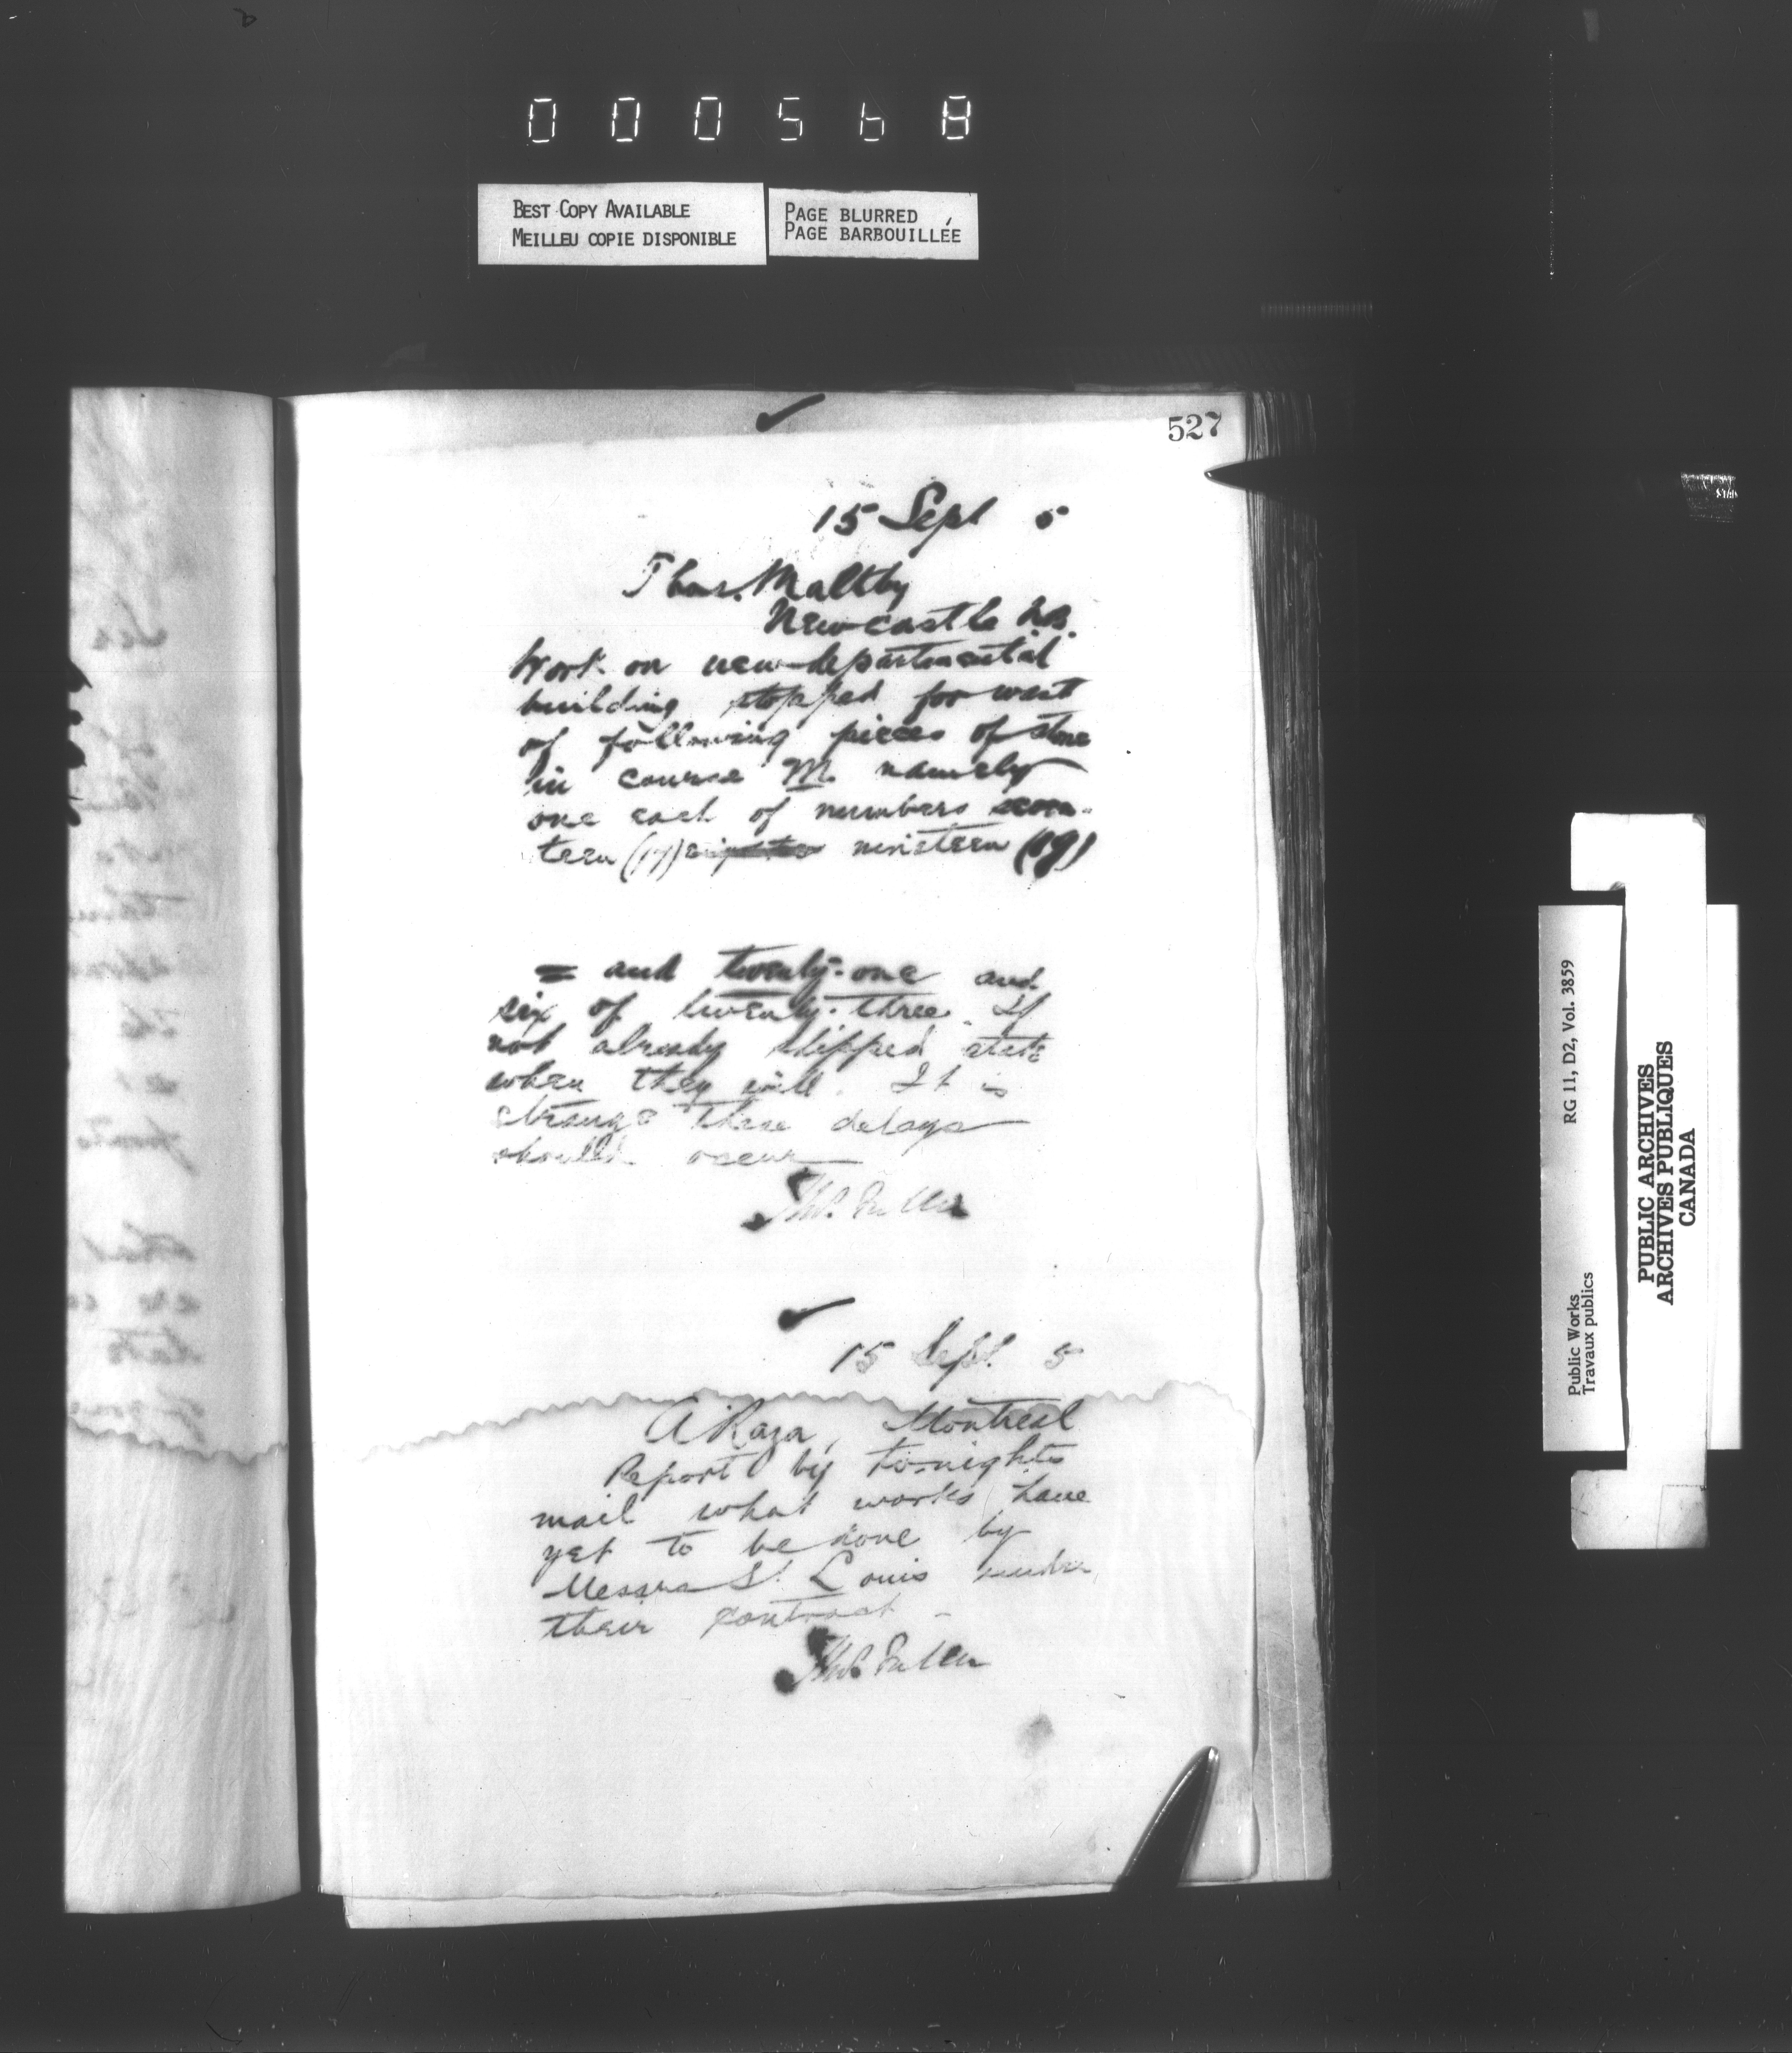 000568
BEST COPY AVAILABLE
MEILLEU COPIE DISPONIBLE
PAGE BLURRED
PAGE BARBOUILLÉE
527
15 Sept 5
Thos. Maltby
Newcastle N.B.
Work on new departmental
building stopped for want
of following pieces of stone
in course M. namely
one each of numbers seven-
teen (17) nineteen (19)
= and twenty-one and
six of twenty-three. If
not already shipped state
when they will. It is
strange these delays
should occur
Thos. Fuller
15 Sept. 5
A Raza, Montreal
Report by to-nights
mail what works have
yet to be done by
Messrs St. Louis under
their contract -
Thos. Fuller
RG 11, D2, Vol. 3859
Public Works
Travaux publics
PUBLIC ARCHIVES
ARCHIVES PUBLIQUES
CANADA